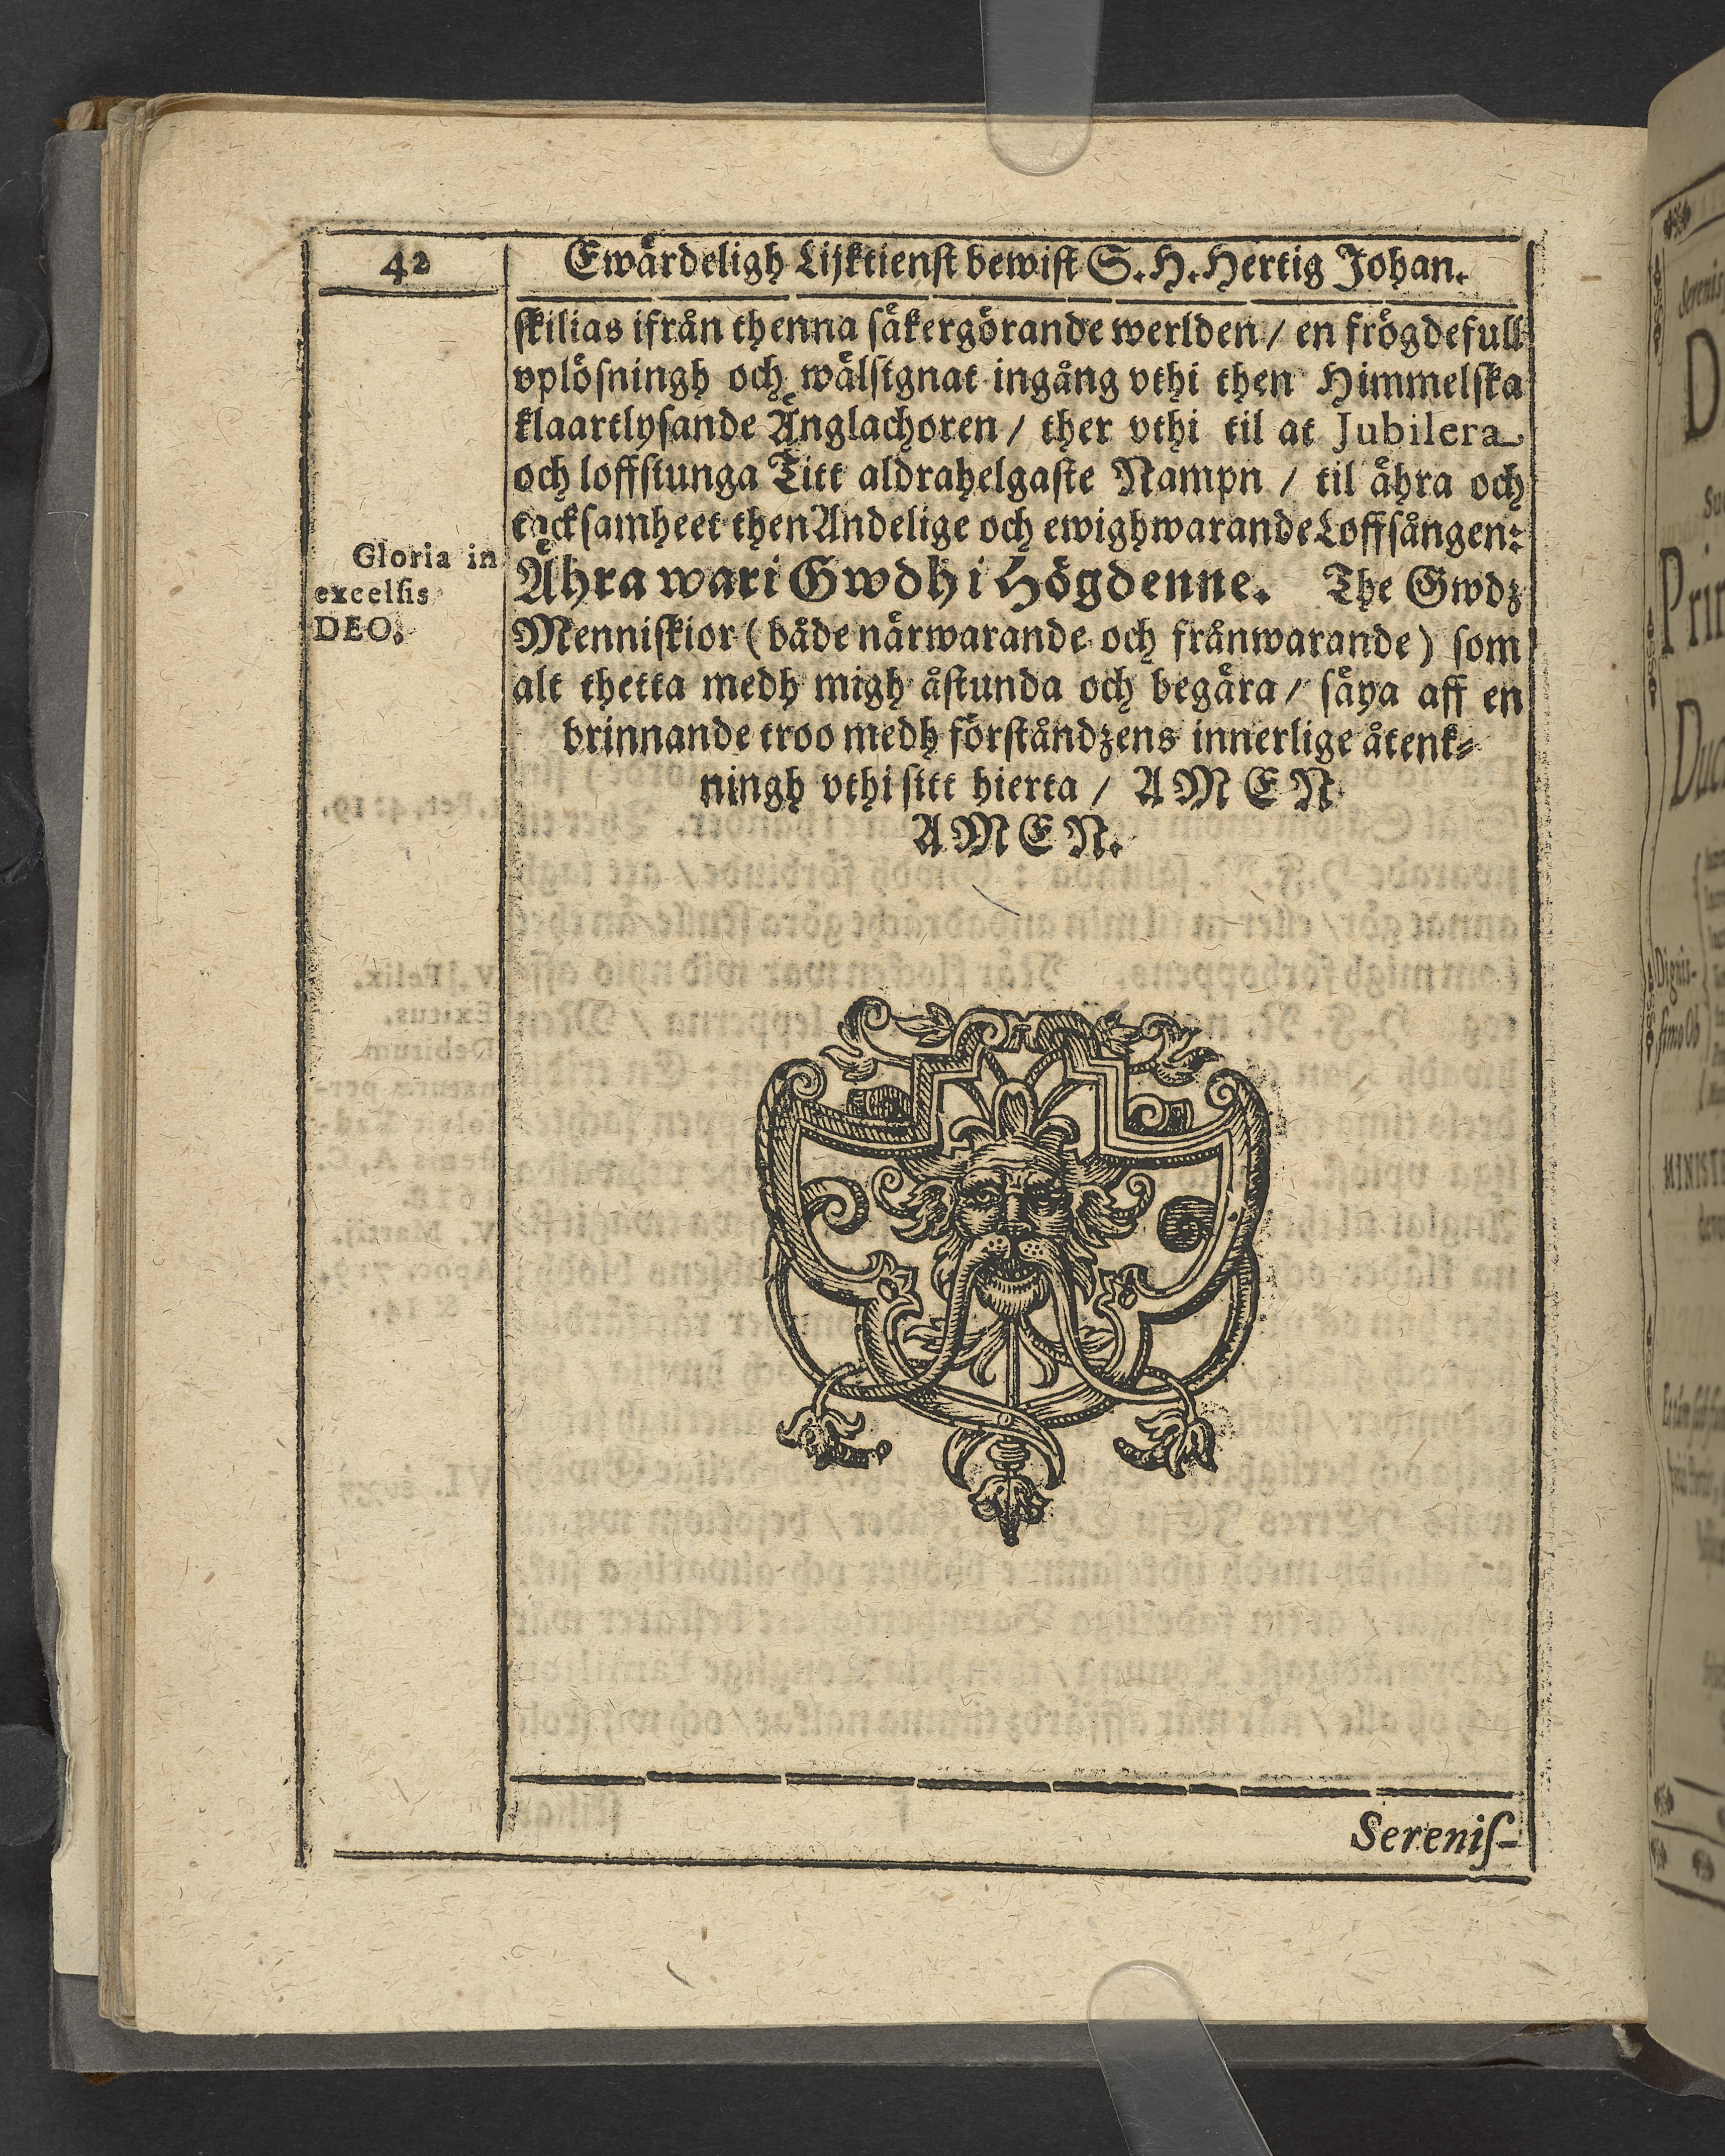 42
Ewärdeligh Lijktienst bewist S. H. Hertig Johan.
skilias ifrån thenna säkergörande werlden / en frögdefull
vplösningh och wälsignat ingång vthi then Himmelska
klaartlysande Änglachoren / ther vthi til at Jubilera
och loffsiunga Titt aldrahelgaste Nampn / til åhra och
tacksamheet then Andelige och ewighwarande Loffsången:
Gloria in
excelsis
DEO.
Ähra wari Gwdh i Högdenne. The Gwdz
Menniskior (både närwarande och frånwarande) som
alt thetta medh migh åstunda och begära / säya aff en
brinnande troo medh förståndzens innerlige åtenk⸗
ningh vthi sitt hierta / AMEN
AMEN.
Sereniſ-